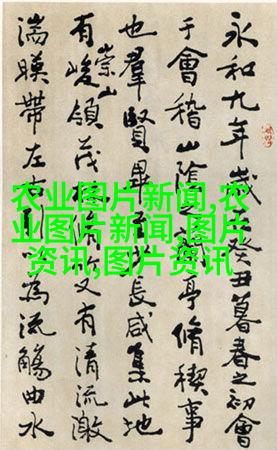 永和九年歲在癸丑暮春之初會
于會稽山陰之亭脩稧事
也羣賢畢長咸集此地
有崇山峻領茂又有清流激
湍暎帶左為流觴曲水
农业图片新闻,农
业图片新闻,图片
资讯,图片资讯